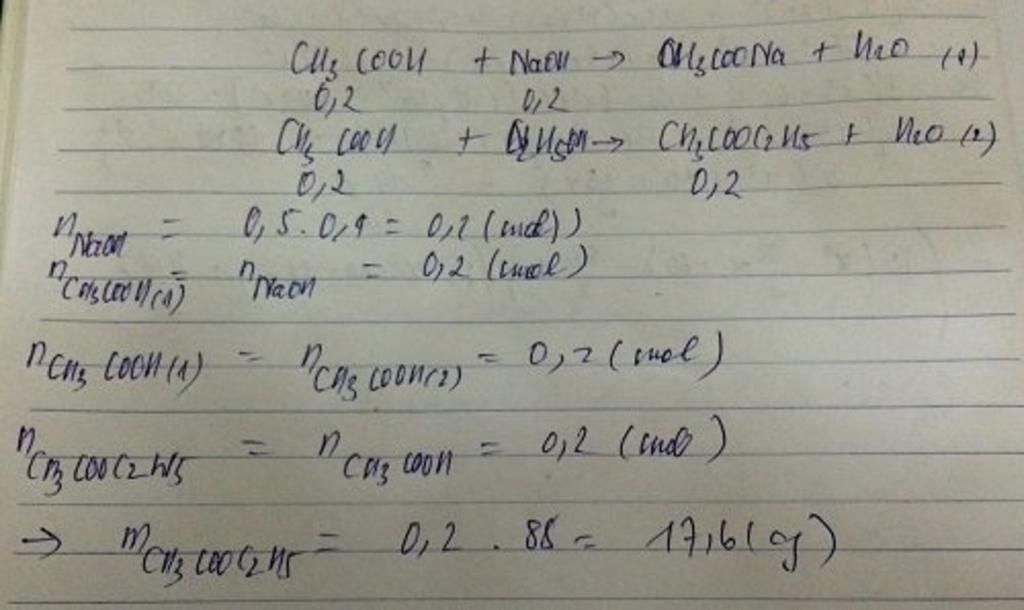 CH3COOH + NaOH → CH3COONa + H2O (1)
0,2 0,2
CH3COOH + C2H5OH → CH3COOC2H5 + H2O (2)
0,2 0,2
nNaOH = 0,5 . 0,4 = 0,2 (mol)
nCH3COOH(1) = nNaOH = 0,2 (mol)
nCH3COOH(1) = nCH3COOH(2) = 0,2 (mol)
nCH3COOC2H5 = nCH3COOH = 0,2 (mol)
→ mCH3COOC2H5 = 0,2 . 88 = 17,6 (g)